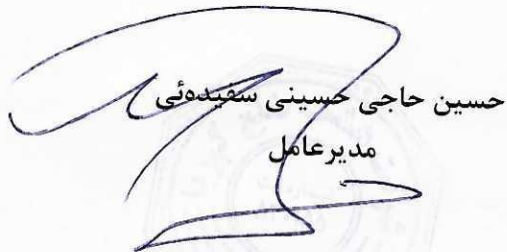 حسین حاجی حسینی سفیدوئی
مدیرعامل